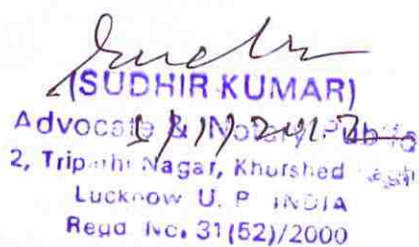 (SUDHIR KUMAR)
Advocate & Notary Public
2, Tripathi Nagar, Khurshed
Lucknow U. P INDIA
Regd No. 31(52)/2000